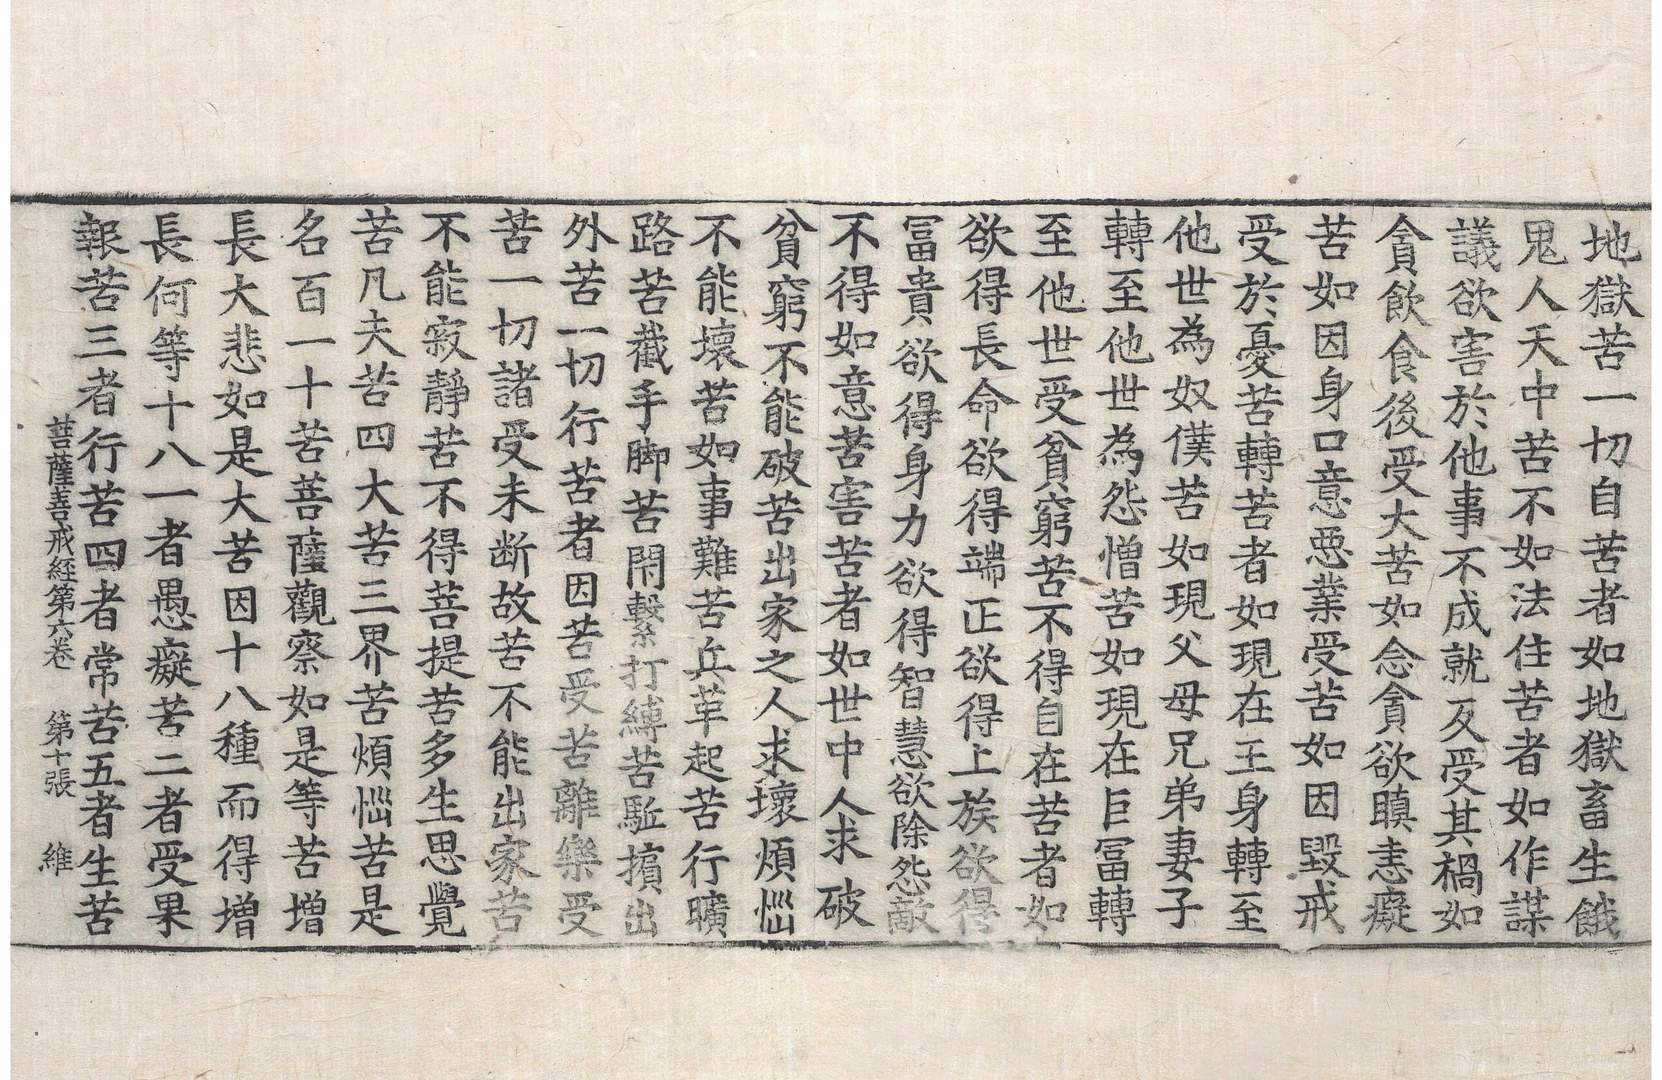 地獄苦一切自苦者如地獄畜生餓
鬼人天中苦不如法住苦者如作謀
議欲害於他事不成就反受其禍如
貪飲食後受大苦如念貪欲瞋恚癡
苦如因身口意惡業受苦如因毀戒
受於憂苦轉苦者如現在王身轉至
他世為奴僕苦如現父母兄弟妻子
轉至他世為怨憎苦如現在巨冨轉
至他世受貧窮苦不得自在苦者如
欲得長命欲得端正欲得上族欲得
冨貴欲得身力欲得智慧欲除怨敵
不得如意苦害苦者如世中人求破
貧窮不能破苦出家之人求壞煩惱
不能壞苦如事難苦兵革起苦行曠
路苦截手脚苦閇繫打縛苦駈擯出
外苦一切行苦者因苦受苦離樂受
苦一切諸受未断故苦不能出家苦
不能寂靜苦不得菩提苦多生思覺
苦凡夫苦四大苦三界苦煩惱苦是
名百一十苦菩薩觀察如是等苦增
長大悲如是大苦因十八種而得增
長何等十八一者愚癡苦二者受果
報苦三者行苦四者常苦五者生苦
菩薩善戒経第六卷 第十張 維